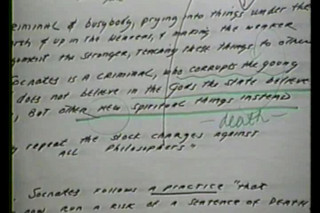 criminal & busybody, prying into things under the
earth & up in the heavens, & making the weaker
argument the stronger, teaching these things to others
Socrates is a criminal, who corrupts the young
& does not believe in the Gods the State believe
But other new spiritual things instead
-death-
y repeat the stock charges against
ALL Philosophers"
Socrates follows a practice "that
now run a risk of a sentence of DEATH